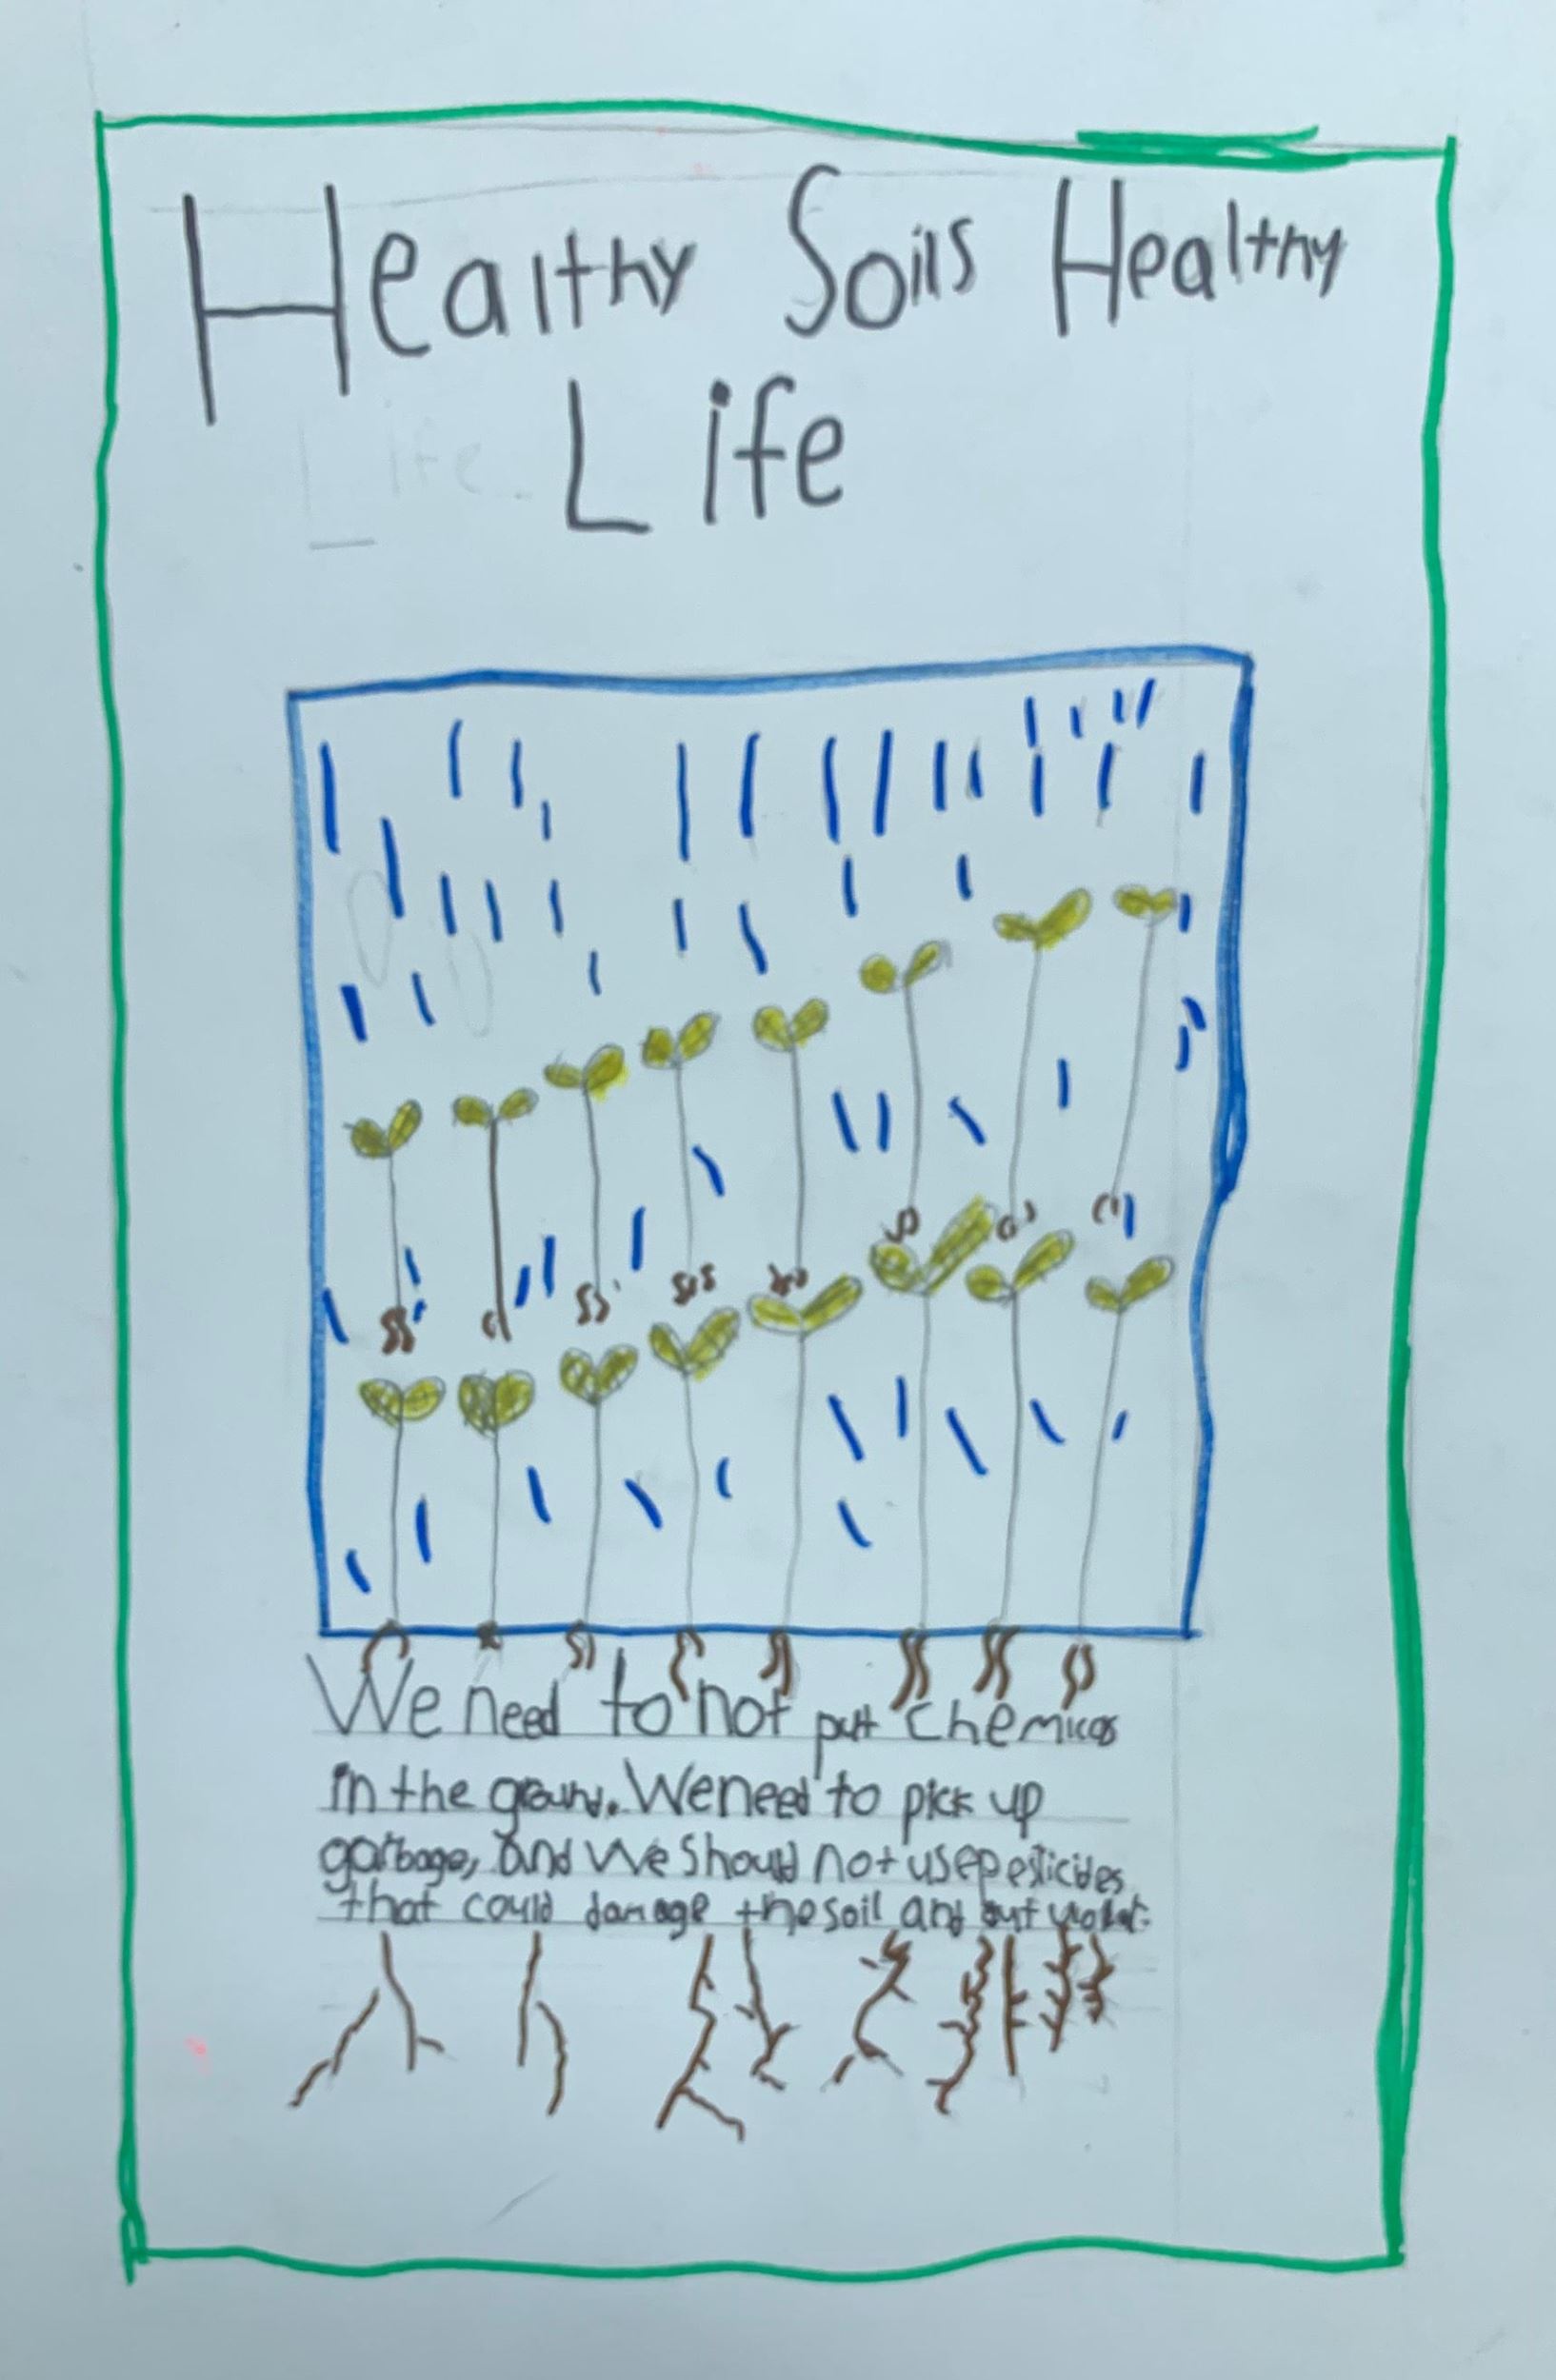 Healthy Soils Healthy
Life
Life
We need to not put chemicas
in the ground. We need to pick up
garbage, and we should not use pesticides
that could damage the soil and